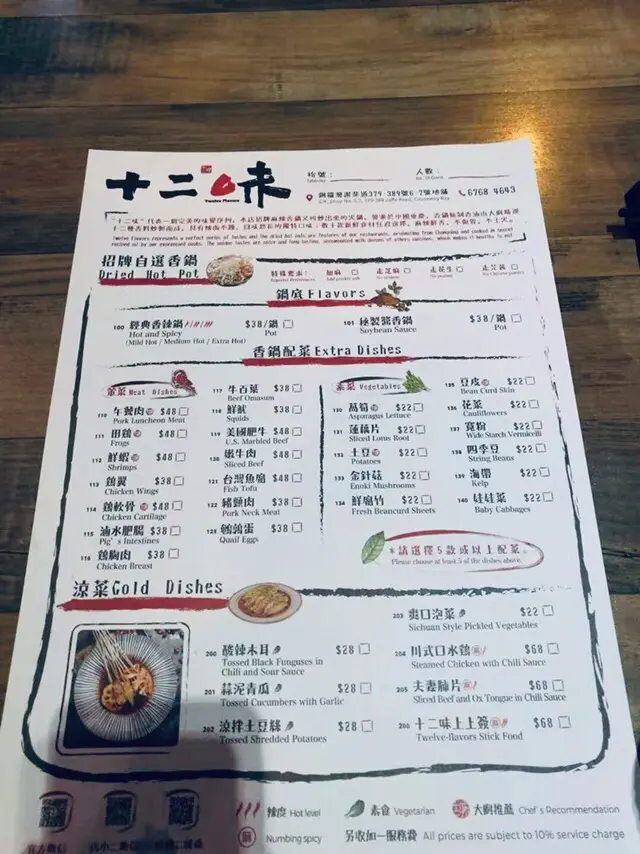 十二味
Twelve Flavors
枱號：
Table No
人數：
No. Of Guest
銅鑼灣謝斐道379-389號6-7號地舖
G/F, Shop No. 6-7, 379-389 Jaffe Road, Causeway Bay
6768 4643
招牌自選香鍋
Dried Hot Pot
特殊要求：
加麻
走芝麻
走花生
走芫茜
鍋底 Flavors
100 經典香辣鍋 $38/鍋
Hot and Spicy Pot
(Mild Hot / Medium Hot / Extra Hot)
101 秘製醬香鍋 $38/鍋
Soybean Sauce Pot
香鍋配菜 Extra Dishes
葷菜 Meat Dishes
110 午餐肉 $48
Pork Luncheon Meat
111 田鷄 $48
Frogs
112 鮮蝦 $48
Shrimps
113 鷄翼 $38
Chicken Wings
114 鷄軟骨 $48
Chicken Cartilage
115 滷水肥腸 $38
Pig's Intestines
116 鷄胸肉 $38
Chicken Breast
117 牛百葉 $38
Beef Omasum
118 鮮魷 $38
Squids
119 美國肥牛 $38
U.S. Marbled Beef
120 嫩牛肉 $38
Sliced Beef
121 台灣魚腐 $38
Fish Tofu
122 豬頸肉 $38
Pork Neck Meat
123 鵪鶉蛋 $38
Quail Eggs
素菜 Vegetables
130 萵筍 $22
Asparagus Lettuce
131 蓮藕片 $22
Sliced Lotus Root
132 土豆 $22
Potatoes
133 金針菇 $22
Enoki Mushrooms
134 鮮腐竹 $22
Fresh Beancurd Sheets
135 豆皮 $22
Bean Curd Skin
136 花菜 $22
Cauliflowers
137 寬粉 $22
Wide Starch Vermicelli
138 四季豆 $22
String Beans
139 海帶 $22
Kelp
140 娃娃菜 $22
Baby Cabbages
*請選擇5款或以上配菜。
Please choose at least 5 of the dishes above.
涼菜 Cold Dishes
200 酸辣木耳 $28
Tossed Black Funguses in
Chili and Sour Sauce
201 蒜泥青瓜 $28
Tossed Cucumbers with Garlic
202 涼拌土豆絲 $28
Tossed Shredded Potatoes
203 爽口泡菜 $22
Sichuan Style Pickled Vegetables
204 川式口水鷄 麻 $68
Steamed Chicken with Chili Sauce
205 夫妻肺片 麻 $68
Sliced Beef and Ox Tongue in Chili Sauce
206 十二味上上簽 麻 $68
Twelve-flavors Stick Food
辣度 Hot level
素食 Vegetarian
大廚推薦 Chef's Recommendation
麻 Numbing spicy
另收加一服務費 All prices are subject to 10% service charge